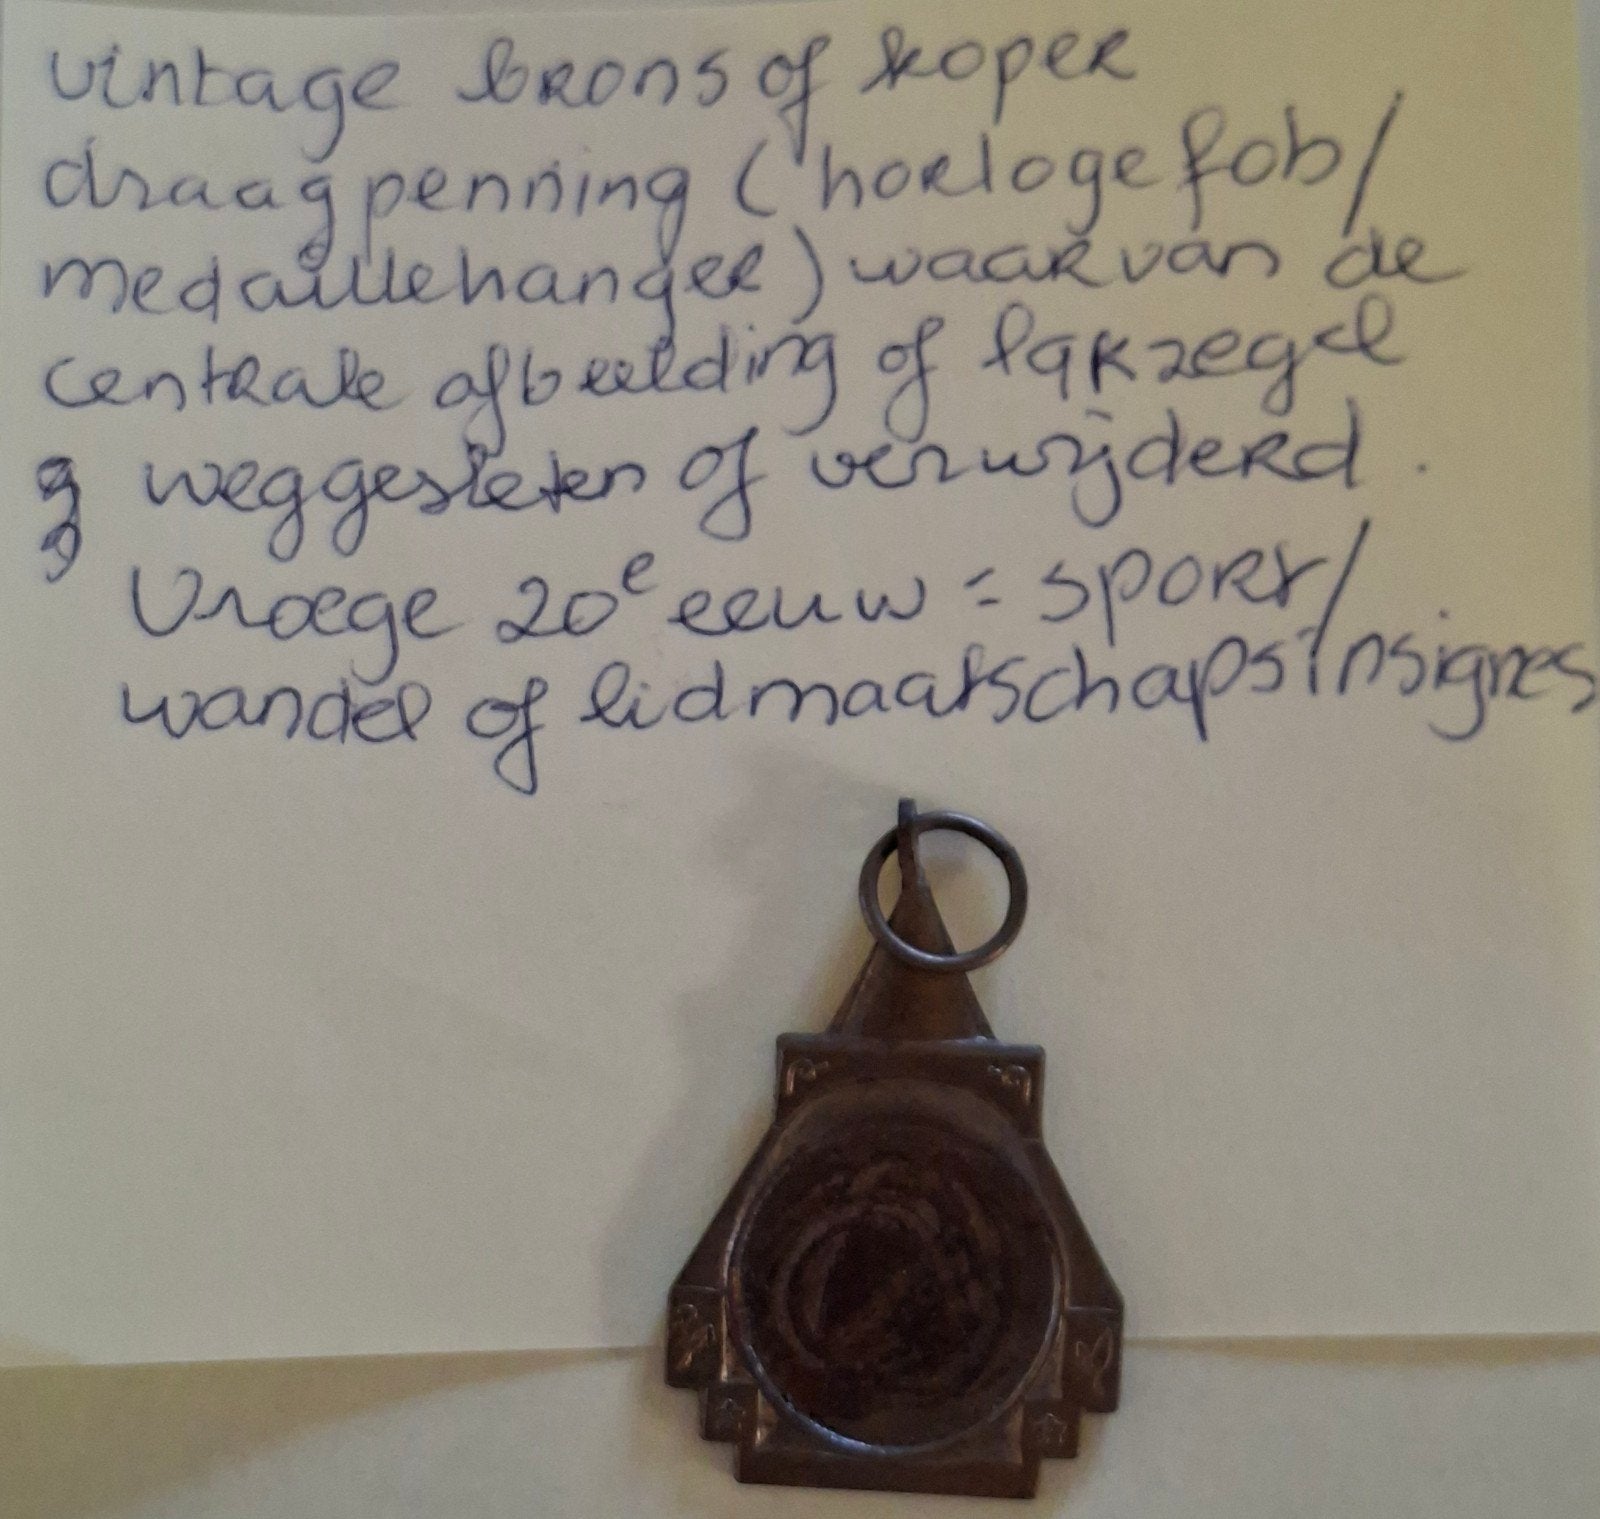 vintage brons of koper
draagpenning (horloge fob/
medaillehanger) waarvan de
centrale afbeelding of lakzegel
weggesleten of verwijderd.
Vroege 20e eeuw = sport/
wandel of lidmaatschapsinsignes